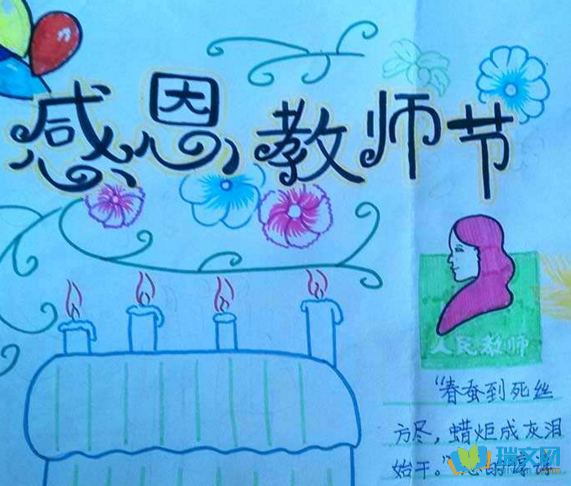 感恩教师节
人民教师
“春蚕到死丝
方尽，蜡炬成灰泪
始干。”您的谆谆
瑞文网